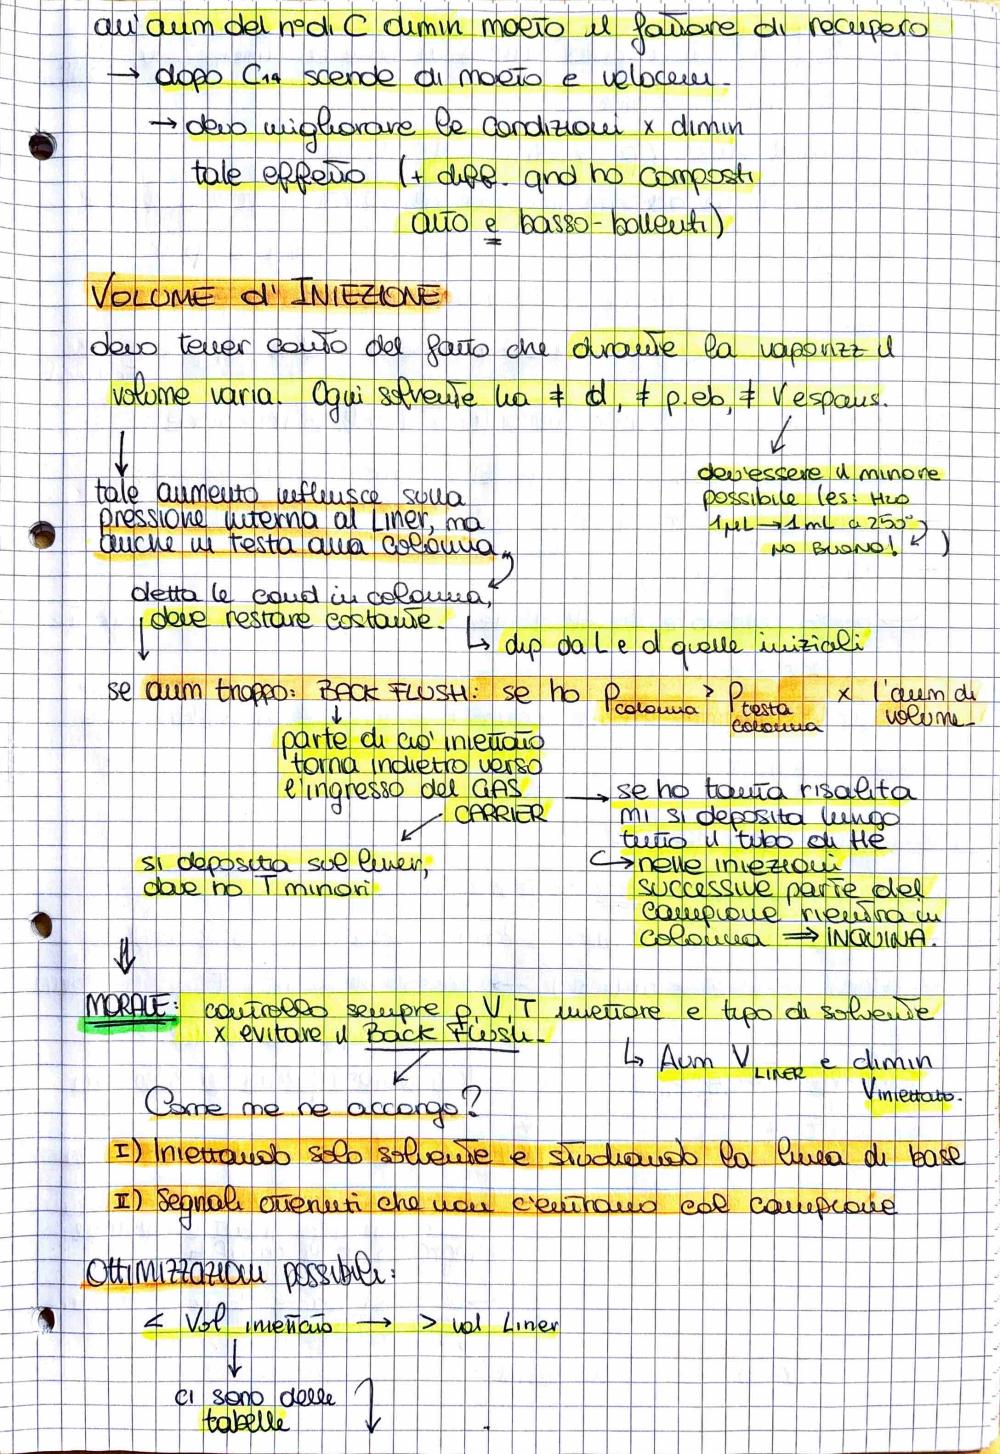 all'aum del n° di C dimin molto il fattore di recupero
→ dopo C14 scende di molto e velocem.
→ devo migliorare le condizioni x dimin
tale effetto (+ diff. qnd ho composti
alto e basso-bollenti)
VOLUME d'INIEZIONE
devo tener conto del fatto che durante la vaporizz il
volume varia. Ogni solvente ha ≠ d, ≠ p.eb, ≠ V espans.
dev'essere il minore
possibile (es: H2O
1μL → 1mL a 250°
NO BUONO! )
tale aumento influisce sulla
pressione interna al Liner, ma
anche in testa alla colonna
detta le cond in colonna,
deve restare costante.
↳ dip da L e d quelle iniziali
se aum troppo: BACK FLUSH: se ho Pcolonna > Ptesta colonna x l'aum di
volume
parte di ciò iniettato
torna indietro verso
l'ingresso del GAS
CARRIER
→ se ho tanta risalita
mi si deposita lungo
tutto il tubo di He
↪ nelle iniezioni
successive parte del
campione rientra in
colonna ⇒ INQUINA.
si deposita sul liner,
dove ho T minori
MORALE: controllo sempre p, V, T iniettore e tipo di solvente
x evitare il Back Flush.
↳ Aum V LINER e dimin
Viniettato.
Come me ne accorgo?
I) Iniettando solo solvente e studiando la linea di base
II) Segnali ottenuti che non c'entrano col campione
Ottimizzazioni possibili:
< Vol iniettato → > vol Liner
ci sono delle
tabelle